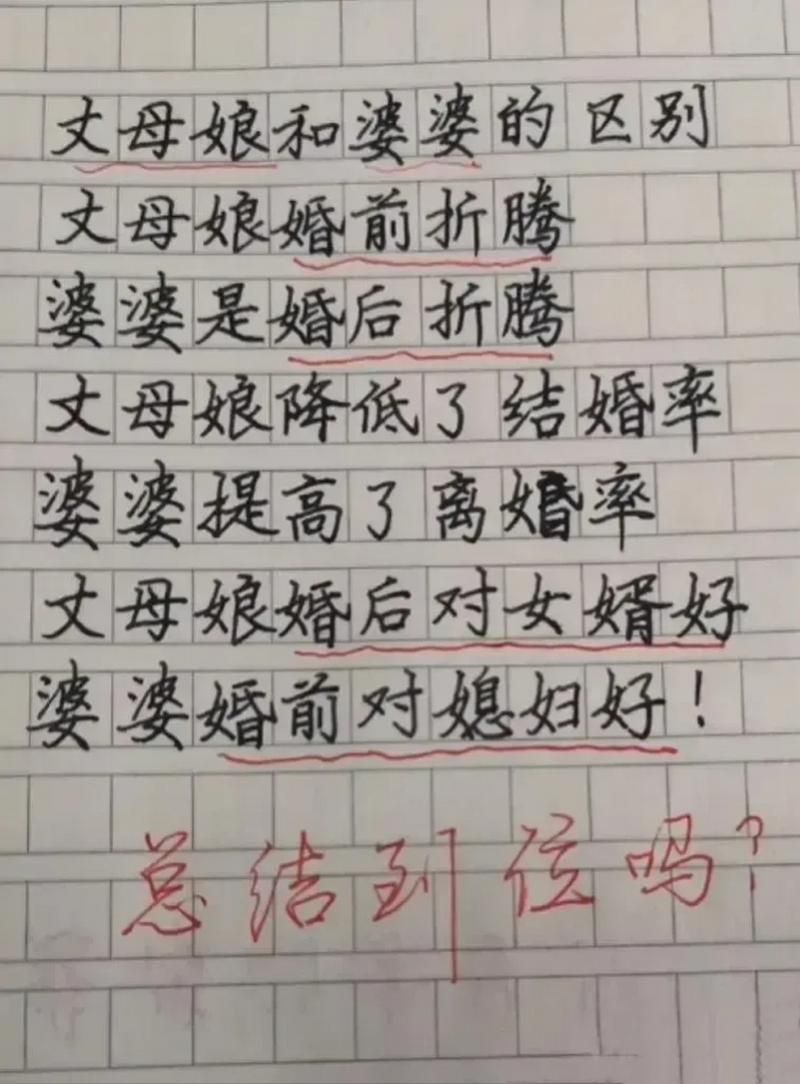 丈母娘和婆婆的区别
丈母娘婚前折腾
婆婆是婚后折腾
丈母娘降低了结婚率
婆婆提高了离婚率
丈母娘婚后对女婿好
婆婆婚前对媳妇好！
总结到位吗？